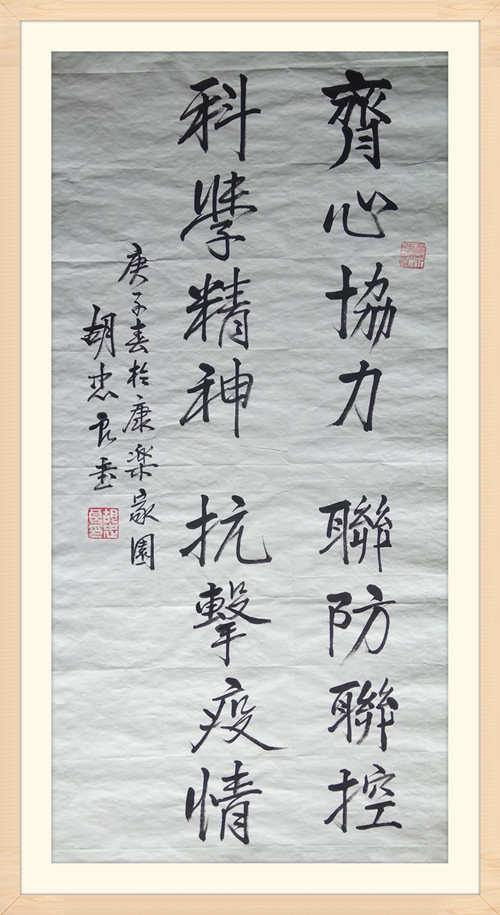 齊心協力 聯防聯控
科學精神 抗擊疫情
庚子春於康樂家園
胡忠良書